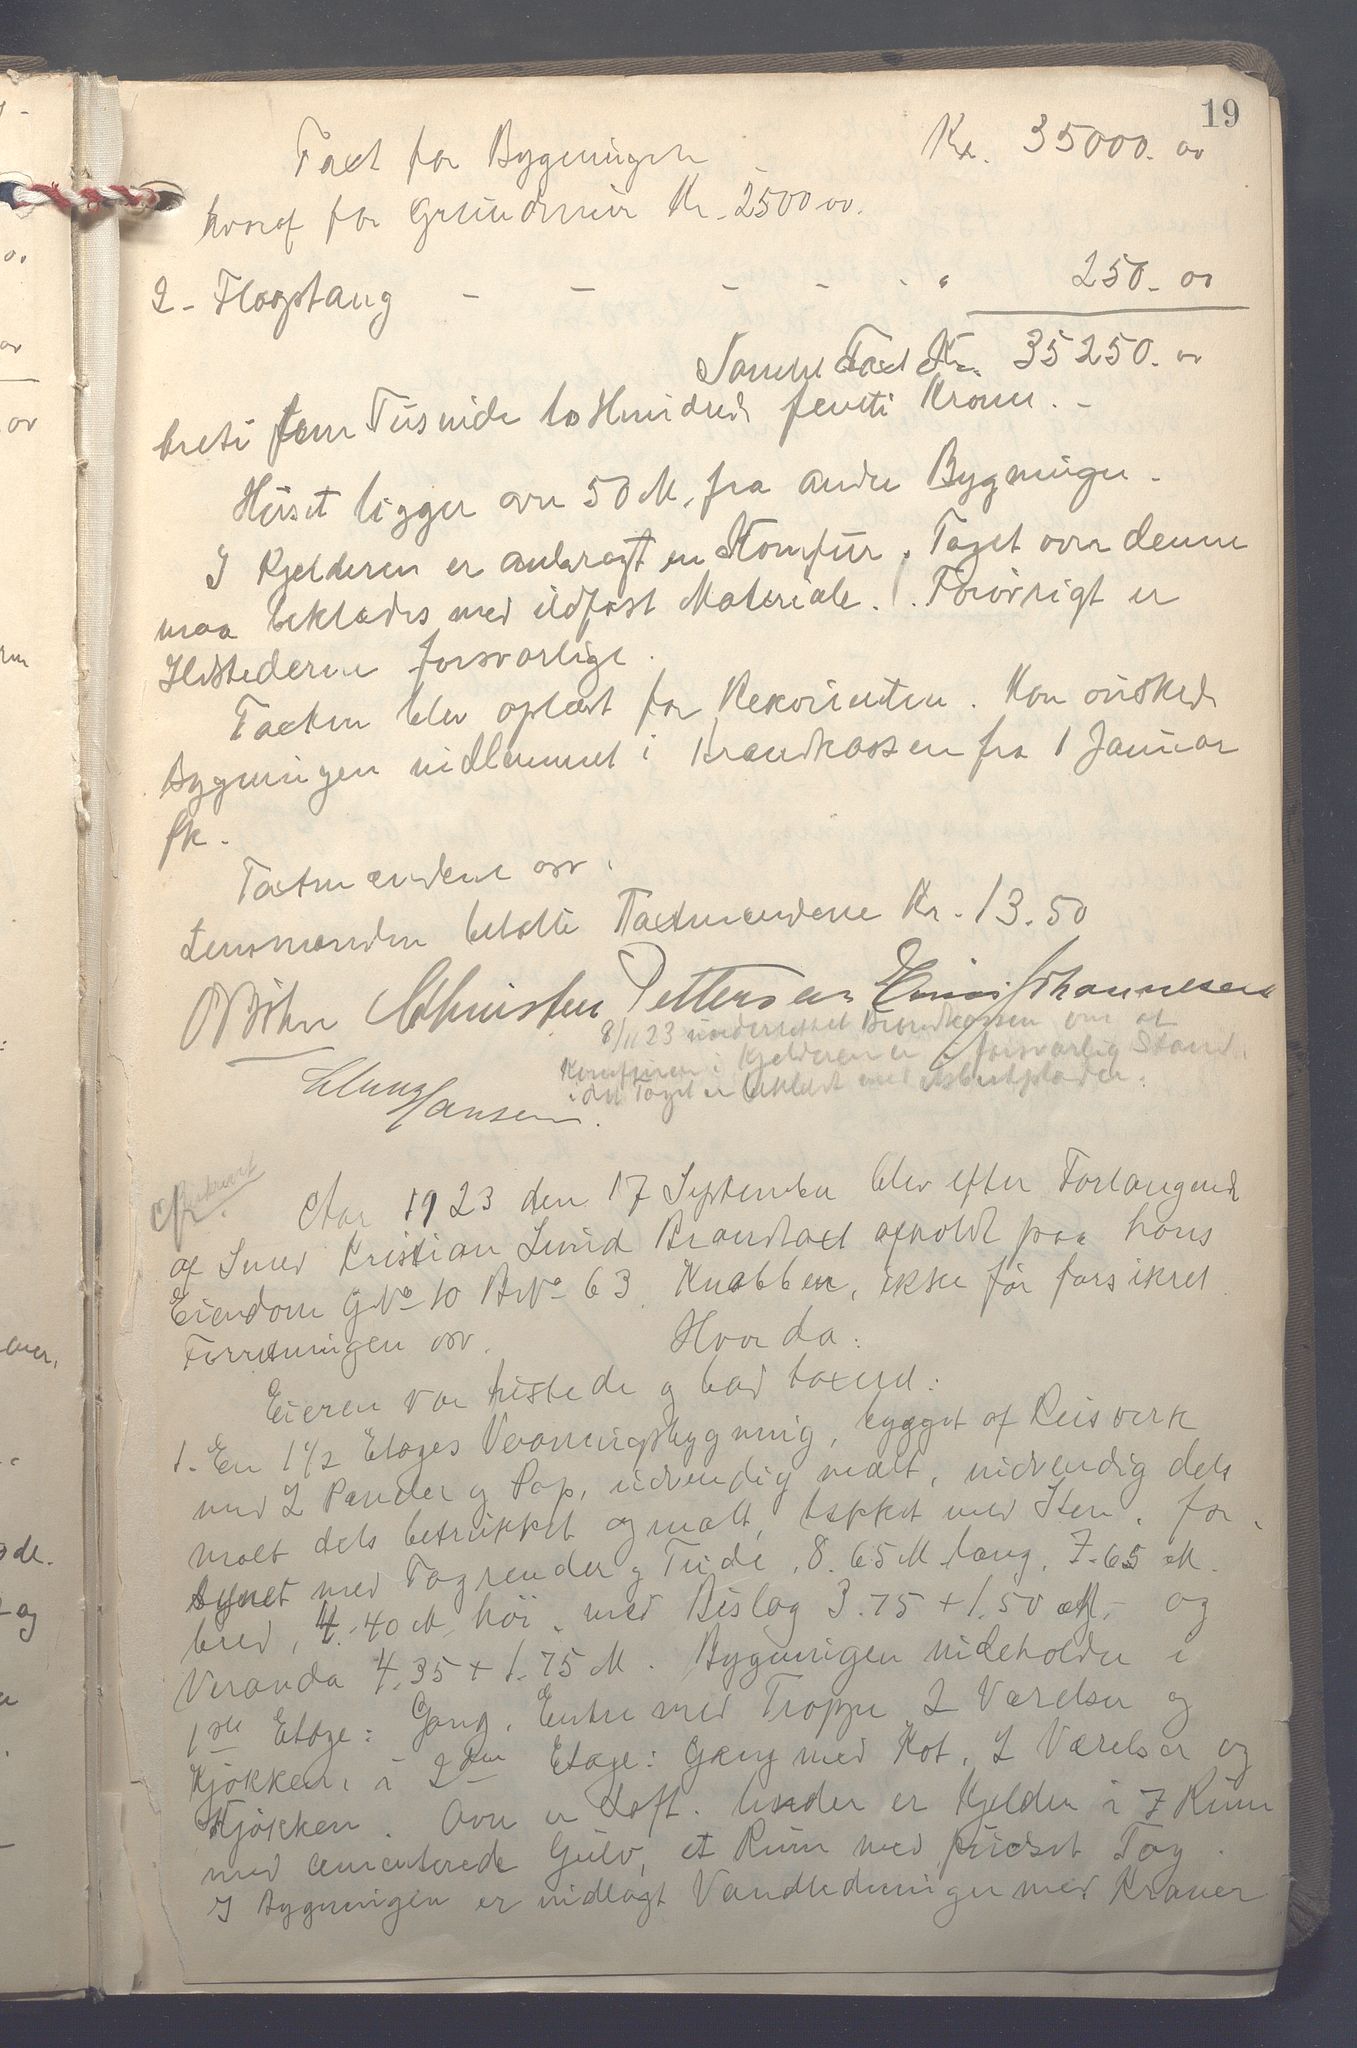 19
Taxt for Bygningen Kr. 35000. 00
hvoraf for Grundmur Kr. 2500 00.
2 - Flagstang - - - - - " 250. 00
Samlet Taxt Kr. 35250. 00
treti fem Tusinde to Hundred femti Kroner. -
Huset ligger over 50 M. fra andre Bygninger.
I Kjelderen er anbragt en Komfur. Taget over denne
maa beklædes med ildfast Materiale. Forøvrigt er
Ildstederne forsvarlige.
Taxten blev oplæst for Rekvirenten. Han ønskede
Bygningen indlemmet i Brandkassen fra 1 Januar
fk.
Taxtmændene osv.
Lensmanden betalte Taxtmændene Kr. 13.50
O Böhn Christen Pettersen Johannesen
8/11 23 underrettet Brandkassen om at
Komfuren i Kjelderen er i forsvarlig Stand,
idet Taget er beklædt med Asbestplader.
Hansen.
Aar 1923 den 17 September blev efter Forlangende
af Smed Kristian Lund Brandtaxt afholdt paa hans
Eiendom G No 10 B No 63 Knabben, ikke før forsikret.
Forretningen osv. Hvorda:
Eieren var tilstede og bad taxeret:
1. En 1 1/2 Etages Vaaningsbygning, bygget af Reisverk
med 2 Pander og Pap, udvendig malt, indvendig dels
malt dels betrukket og malt, tækket med Sten, for-
synet med Tagrender og Nedl., 8.65 M lang, 7.65 M.
bred, 4.40 M høi, med Bislag 3.75 + 1.50 M. og
Veranda 4.35 + 1.75 M. Bygningen indeholder i
1ste Etage: Gang, Entre med Trappe 2 Værelser og
Kjøkken, i 2den Etage: Gang med Kot, 2 Værelser og
Kjøkken. Over er Loft. Under er Kjelder i 7 Rum
med cementerede Gulv, et Rum med pudset Tag.
I Bygningen er indlagt Vandledninger med Kraner